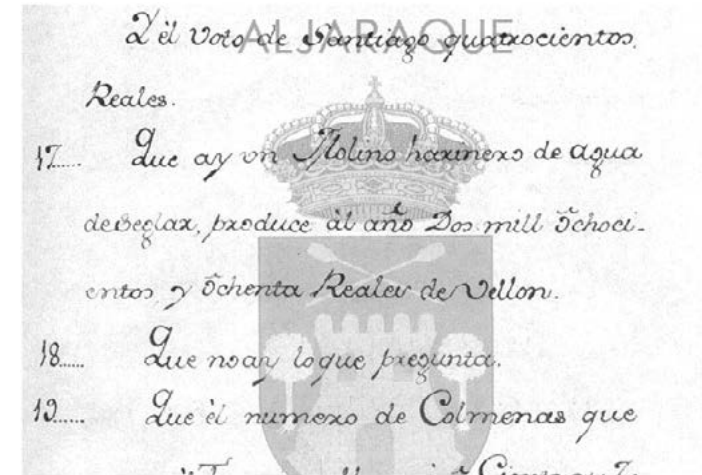 ALJARAQUE
Y èl Voto de Santiago quatrocientos
Reales.
17..... Que ay un Molino harinero de agua
de Seglar, produce àl año Dos mill Ochoci-
entos, y Ochenta Reales de Vellon.
18..... Que no ay lo que pregunta.
19..... Que èl numero de Colmenas que